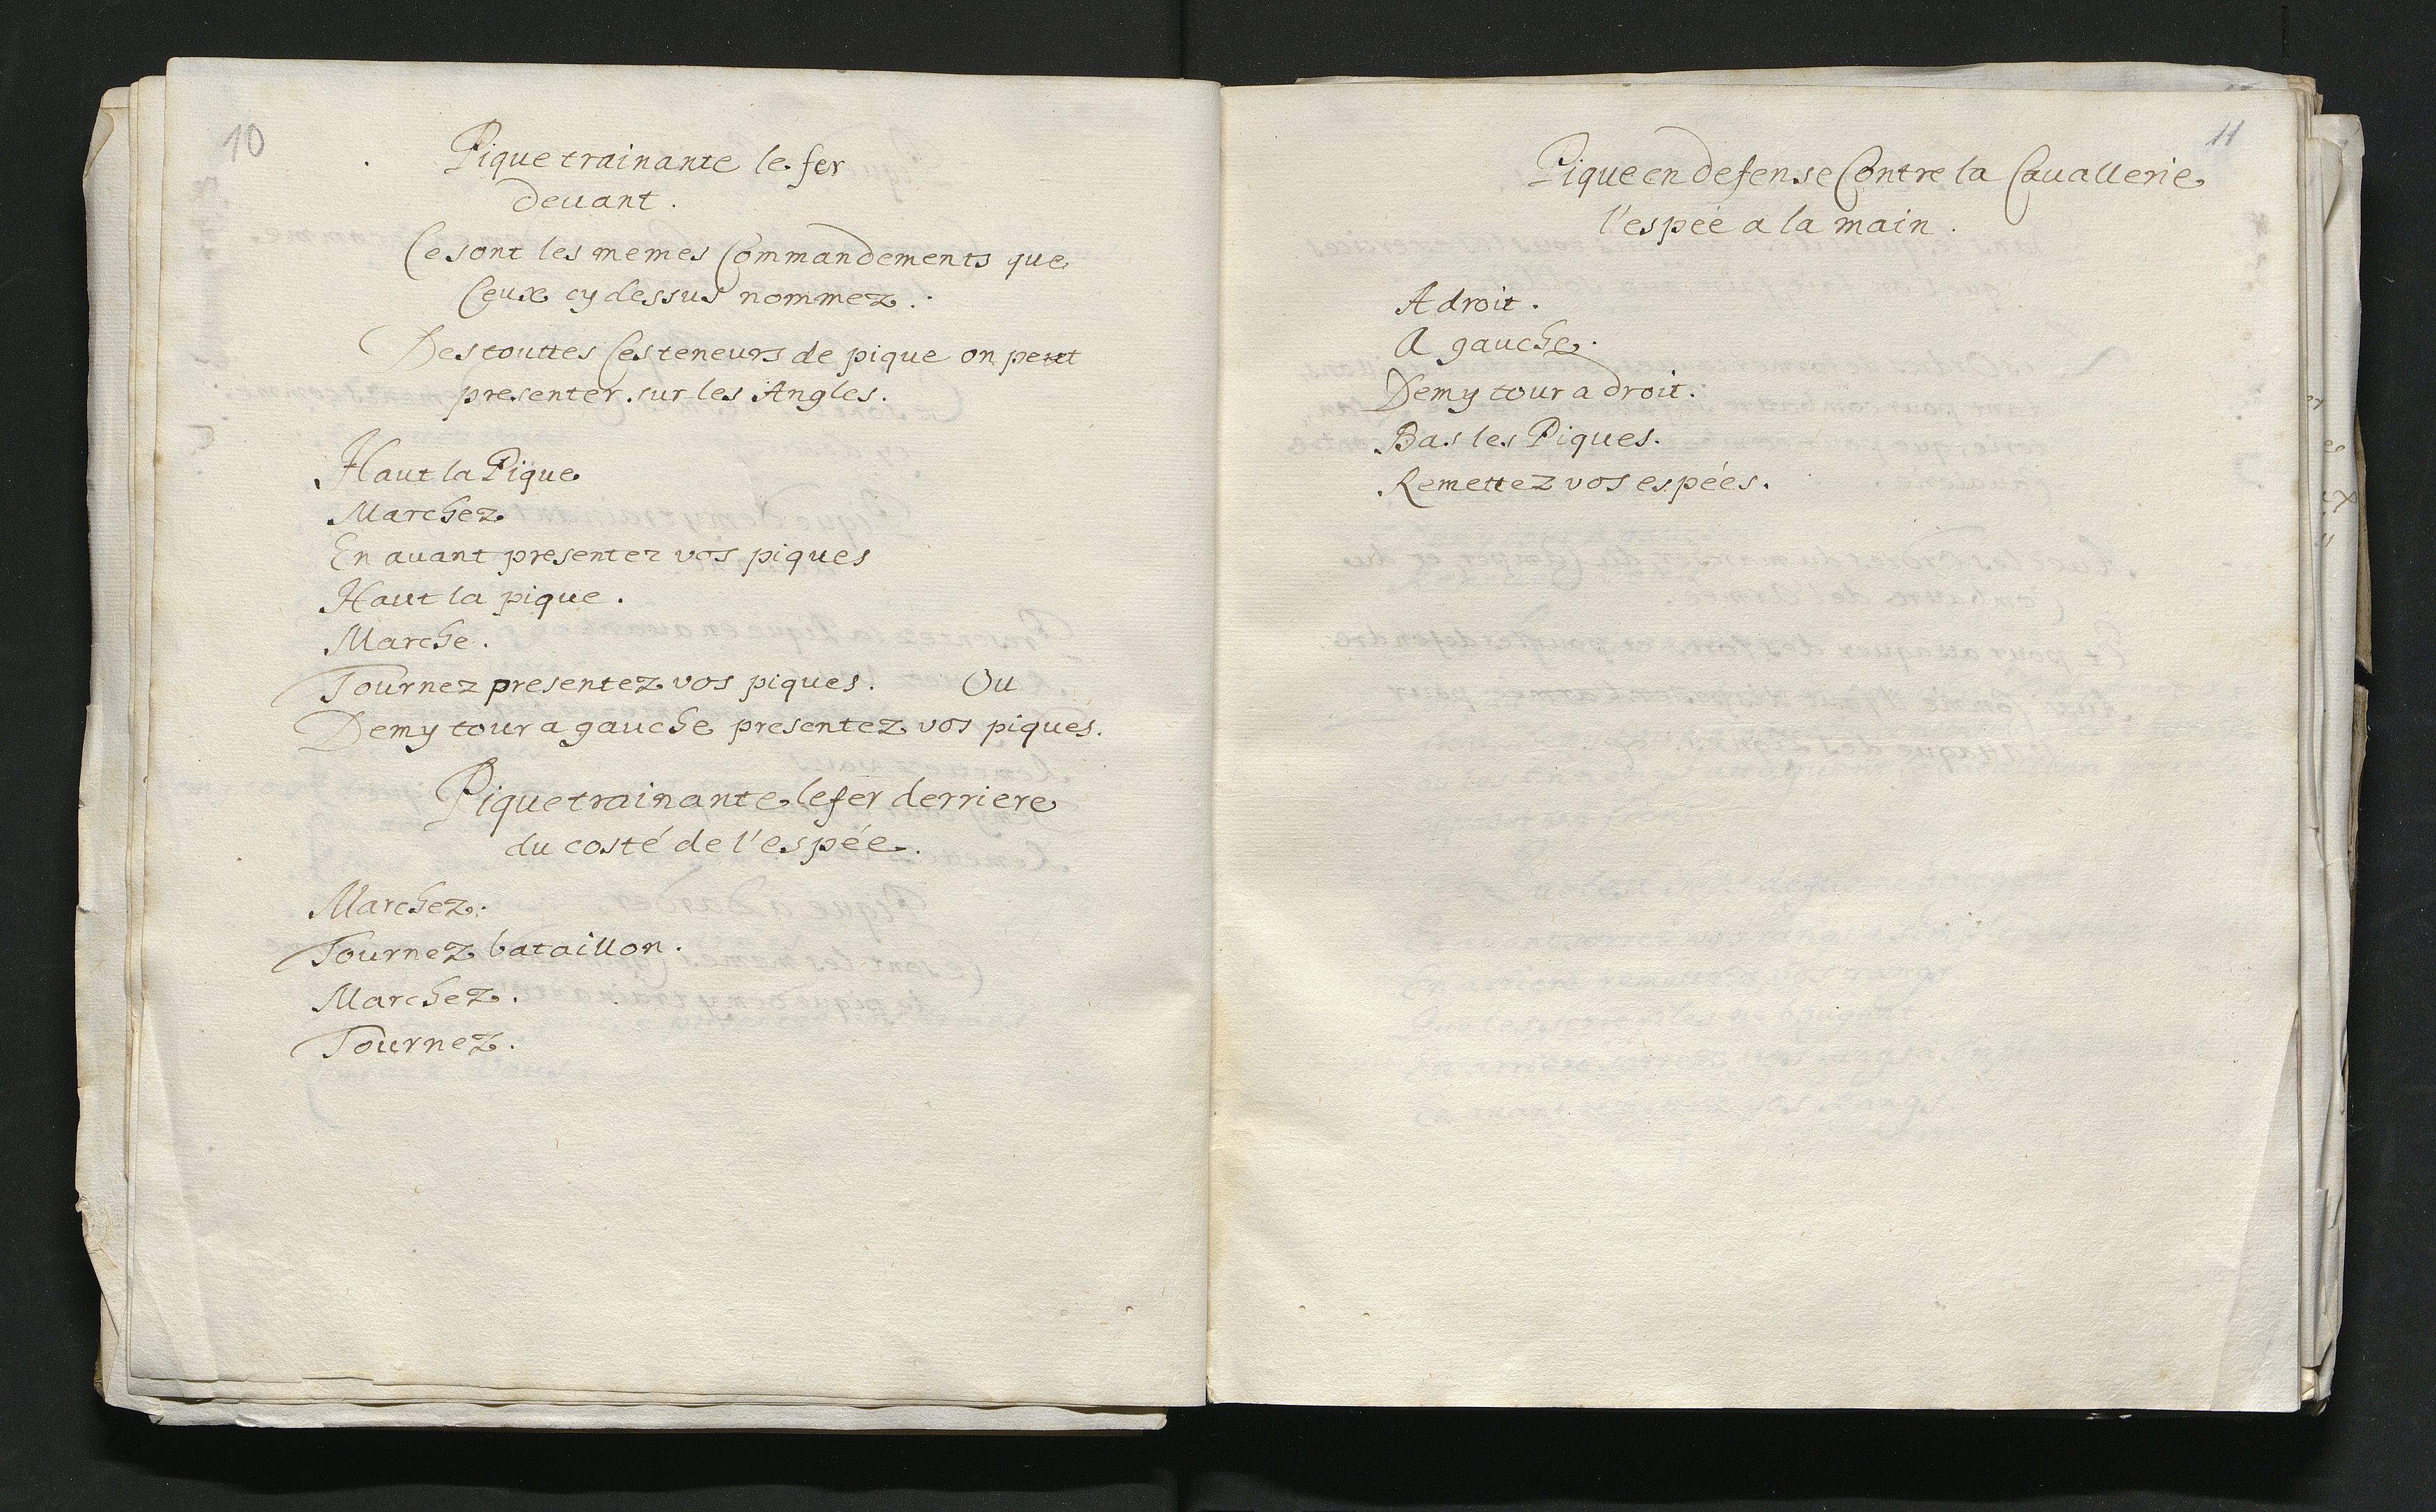 10
Pique trainante le fer
devant.
Ce sont les memes Commandements que
Ceux cy dessus nommez.
Des touttes Ces teneurs de pique on peut
presenter sur les Angles.
Haut la Pique
Marchez
En avant presentez vos piques
Haut la pique.
Marche.
Tournez presentez vos piques. Ou
Demy tour a gauche presentez vos piques.
Pique trainante le fer derriere
du costé de l'espée.
Marchez.
Tournez bataillon.
Marchez.
Tournez.
11
Pique en defense Contre la Cauallerie
l'espée a la main.
A droit.
A gauche.
Demy tour a droit.
Bas les Piques.
Remettez vos espées.